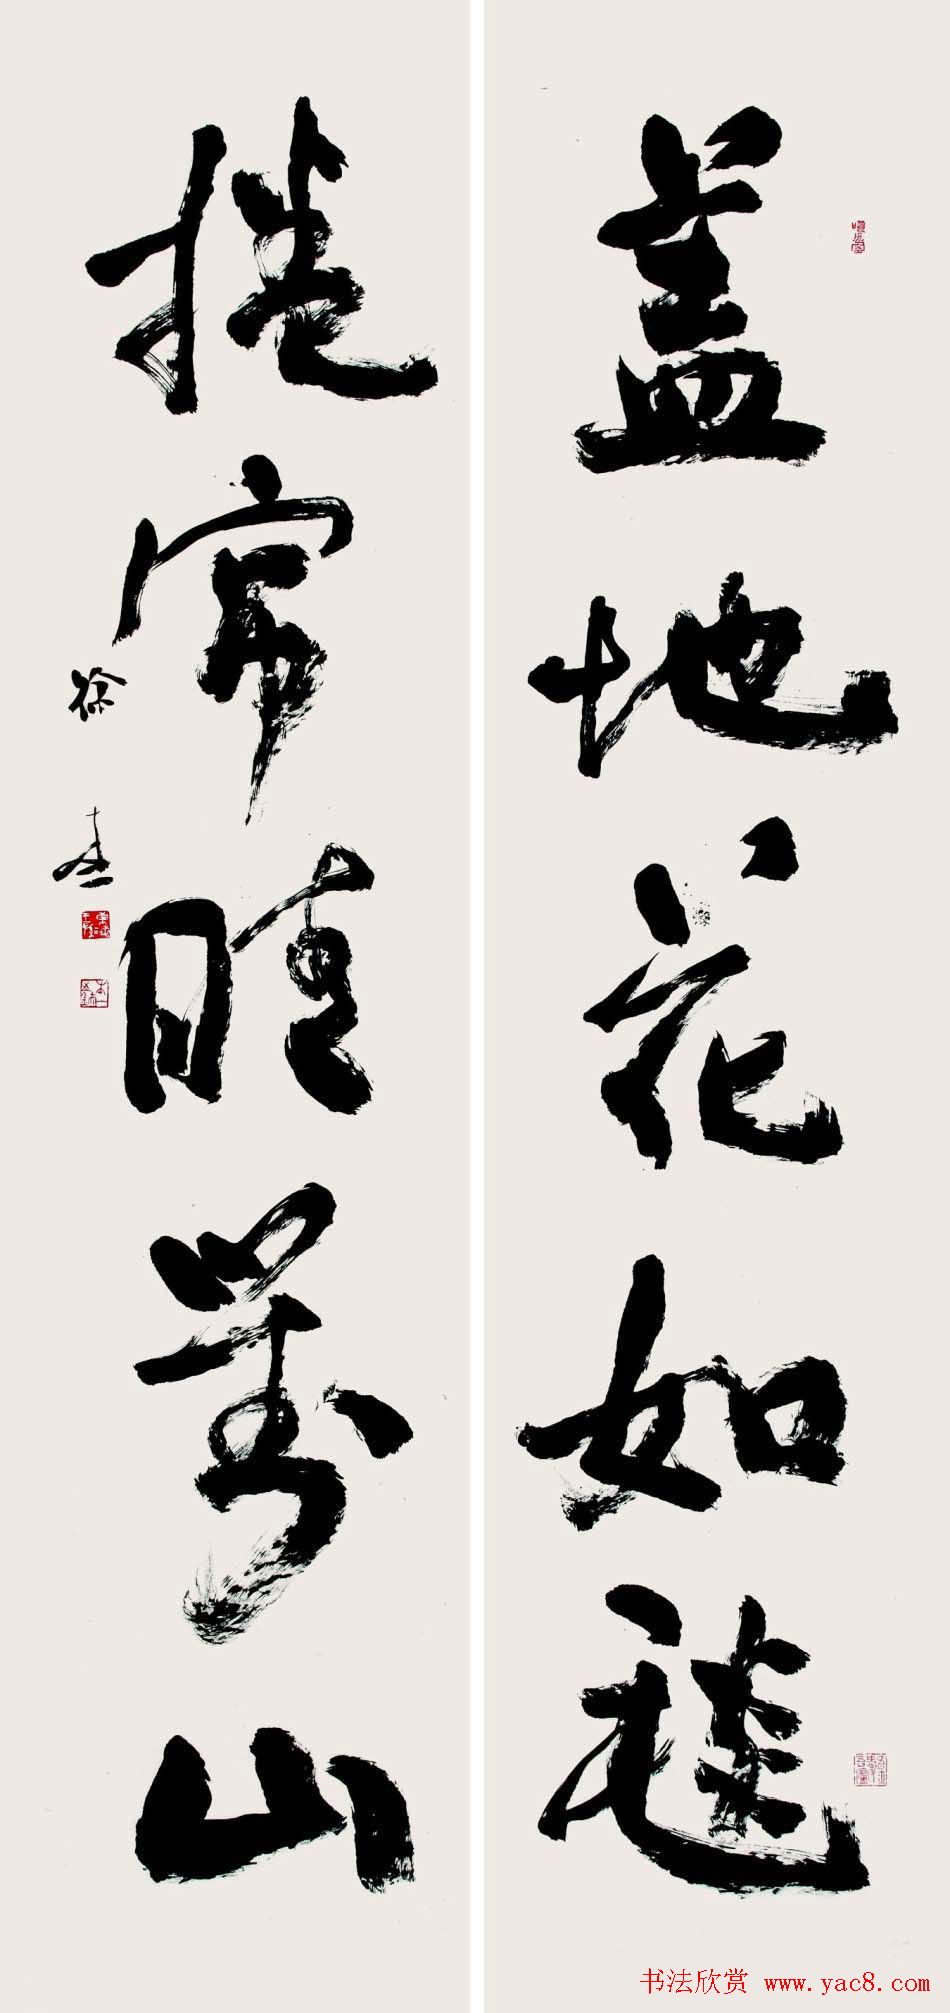 盖地花如毯
捲帘晴對山
徐
书法欣赏 www.yac8.com